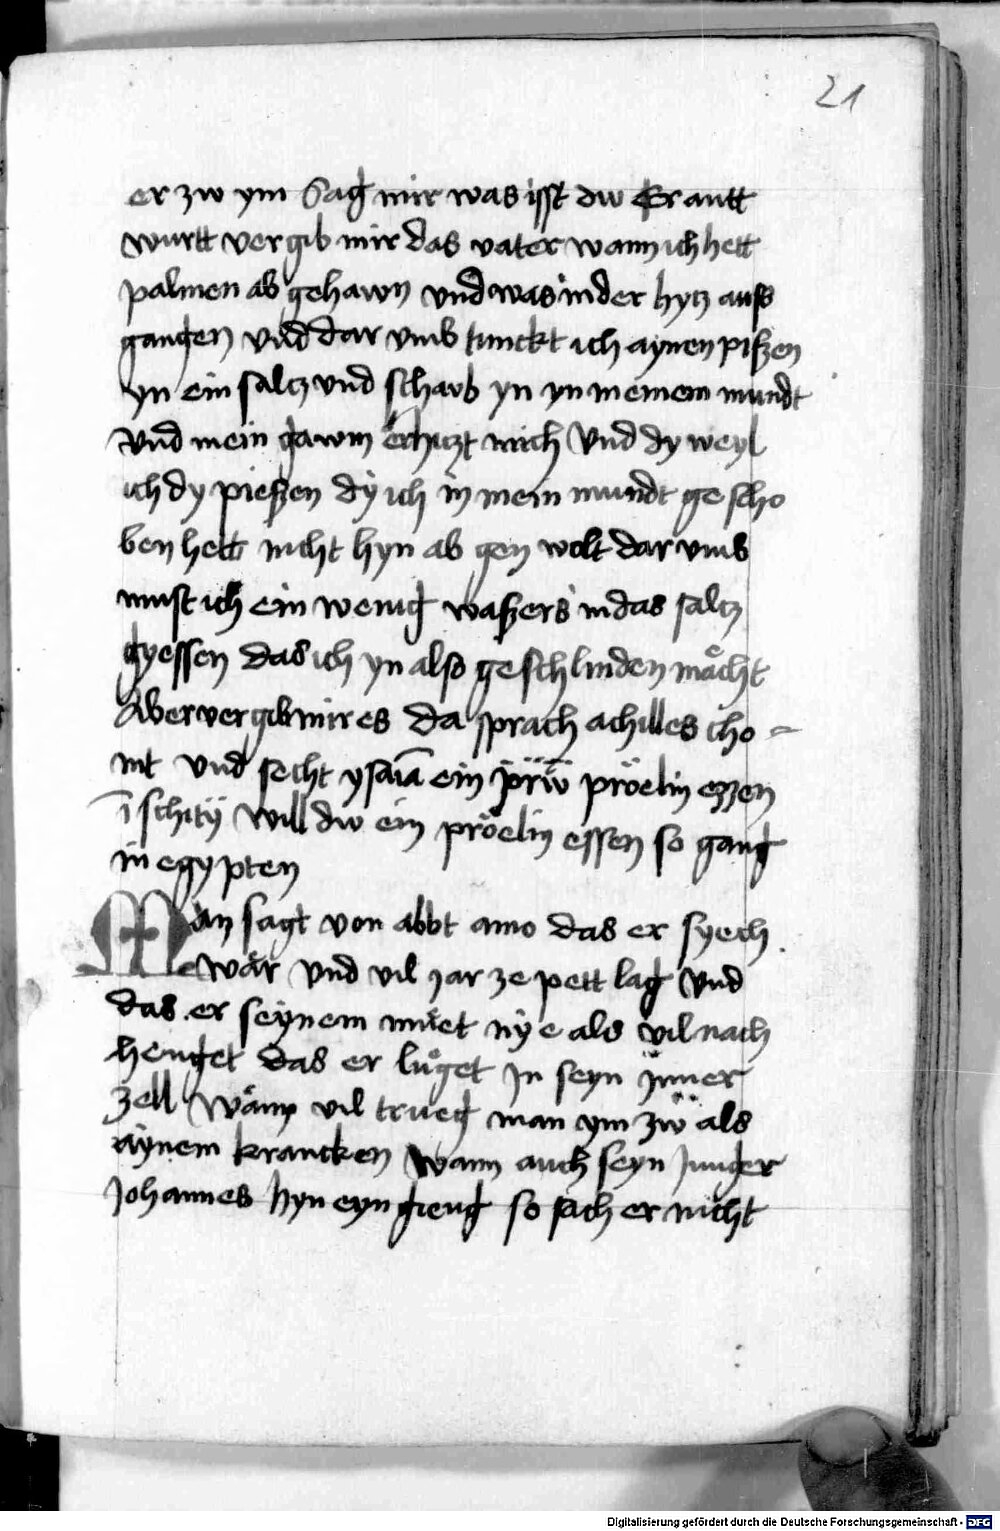 21
er zw ym Sag mir was isst dw Er antt
wurtt vergib mir das vater wann ich hett
palmen ab gehawn vnd was in der hytz auss
gangen vnd dar vmb tunckt ich aynen pissen
yn ein saltz vnd schawb yn yn meinem mundt
vnd mein gawm erhitzt mich Vnd dy weyl
ich dy piessen dy ich in mein mundt gescho
ben hett nicht hyn ab gen wolt dar vmb
must ich ein wenig wassers in das saltz
gyessen das ich yn also geschlinden möcht
Aber vergib mir es da sprach achilles cho=
mt vnd secht ysaiā ein pröelin ezzen
ī schitÿ Will dw ein pröelin essen so gang
in egypten
Man sagt von abbt amo das er syech
wär vnd vil jar ze pett lag Vnd
das er seynem muet nÿe als vil nach
henget das er lüget Jn seyn jnner
zell Wann vil trueg man ym zw als
aynem krancken Wann auch seyn Junger
Johannes hyn eyn gieng so sach er nicht
Digitalisierung gefördert durch die Deutsche Forschungsgemeinschaft - DFG